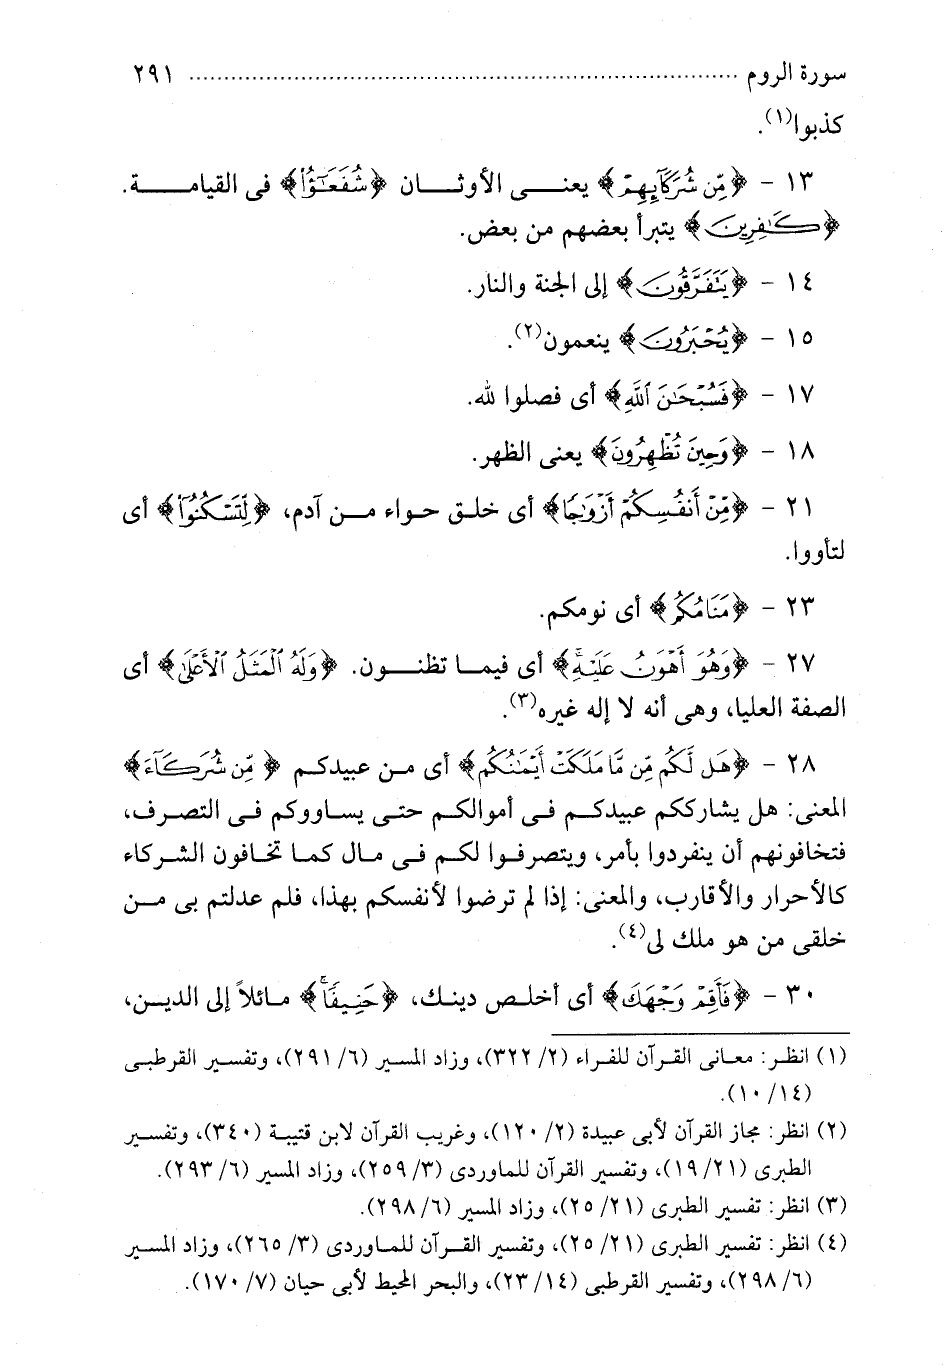 سورة الروم ........................................................................ ٢٩١
كذبوا(١).
١٣ - ﴿مِّن شُرَكَآئِهِمْ﴾ يعنى الأوثان ﴿شُفَعَـٰٓؤُا۟﴾ فى القيامة.
﴿كَـٰفِرِينَ﴾ يتبرأ بعضهم من بعض.
١٤ - ﴿يَتَفَرَّقُونَ﴾ إلى الجنة والنار.
١٥ - ﴿يُحْبَرُونَ﴾ ينعمون(٢).
١٧ - ﴿فَسُبْحَـٰنَ ٱللَّهِ﴾ أى فصلوا لله.
١٨ - ﴿وَحِينَ تُظْهِرُونَ﴾ يعنى الظهر.
٢١ - ﴿مِّنْ أَنفُسِكُمْ أَزْوَٰجًا﴾ أى خلق حواء من آدم، ﴿لِّتَسْكُنُوٓا۟﴾ أى
لتأووا.
٢٣ - ﴿مَنَامُكُم﴾ أى نومكم.
٢٧ - ﴿وَهُوَ أَهْوَنُ عَلَيْهِ ۚ﴾ أى فيما تظنون. ﴿وَلَهُ ٱلْمَثَلُ ٱلْأَعْلَىٰ﴾ أى
الصفة العليا، وهى أنه لا إله غيره(٣).
٢٨ - ﴿هَل لَّكُم مِّن مَّا مَلَكَتْ أَيْمَـٰنُكُم﴾ أى من عبيدكم ﴿مِّن شُرَكَآءَ﴾
المعنى: هل يشارككم عبيدكم فى أموالكم حتى يساووكم فى التصرف،
فتخافونهم أن ينفردوا بأمر، ويتصرفوا لكم فى مال كما تخافون الشركاء
كالأحرار والأقارب، والمعنى: إذا لم ترضوا لأنفسكم بهذا، فلم عدلتم بى من
خلقى من هو ملك لى(٤).
٣٠ - ﴿فَأَقِمْ وَجْهَكَ﴾ أى أخلص دينك، ﴿حَنِيفًا ۚ﴾ مائلاً إلى الدين،
(١) انظر: معانى القرآن للفراء (٢/ ٣٢٢)، وزاد المسير (٦/ ٢٩١)، وتفسير القرطبى
(١٤/ ١٠).
(٢) انظر: مجاز القرآن لأبى عبيدة (٢/ ١٢٠)، وغريب القرآن لابن قتيبة (٣٤٠)، وتفسير
الطبرى (٢١/ ١٩)، وتفسير القرآن للماوردى (٣/ ٢٥٩)، وزاد المسير (٦/ ٢٩٣).
(٣) انظر: تفسير الطبرى (٢١/ ٢٥)، وزاد المسير (٦/ ٢٩٨).
(٤) انظر: تفسير الطبرى (٢١/ ٢٥)، وتفسير القرآن للماوردى (٣/ ٢٦٥)، وزاد المسير
(٦/ ٢٩٨)، وتفسير القرطبى (١٤/ ٢٣)، والبحر المحيط لأبى حيان (٧/ ١٧٠).